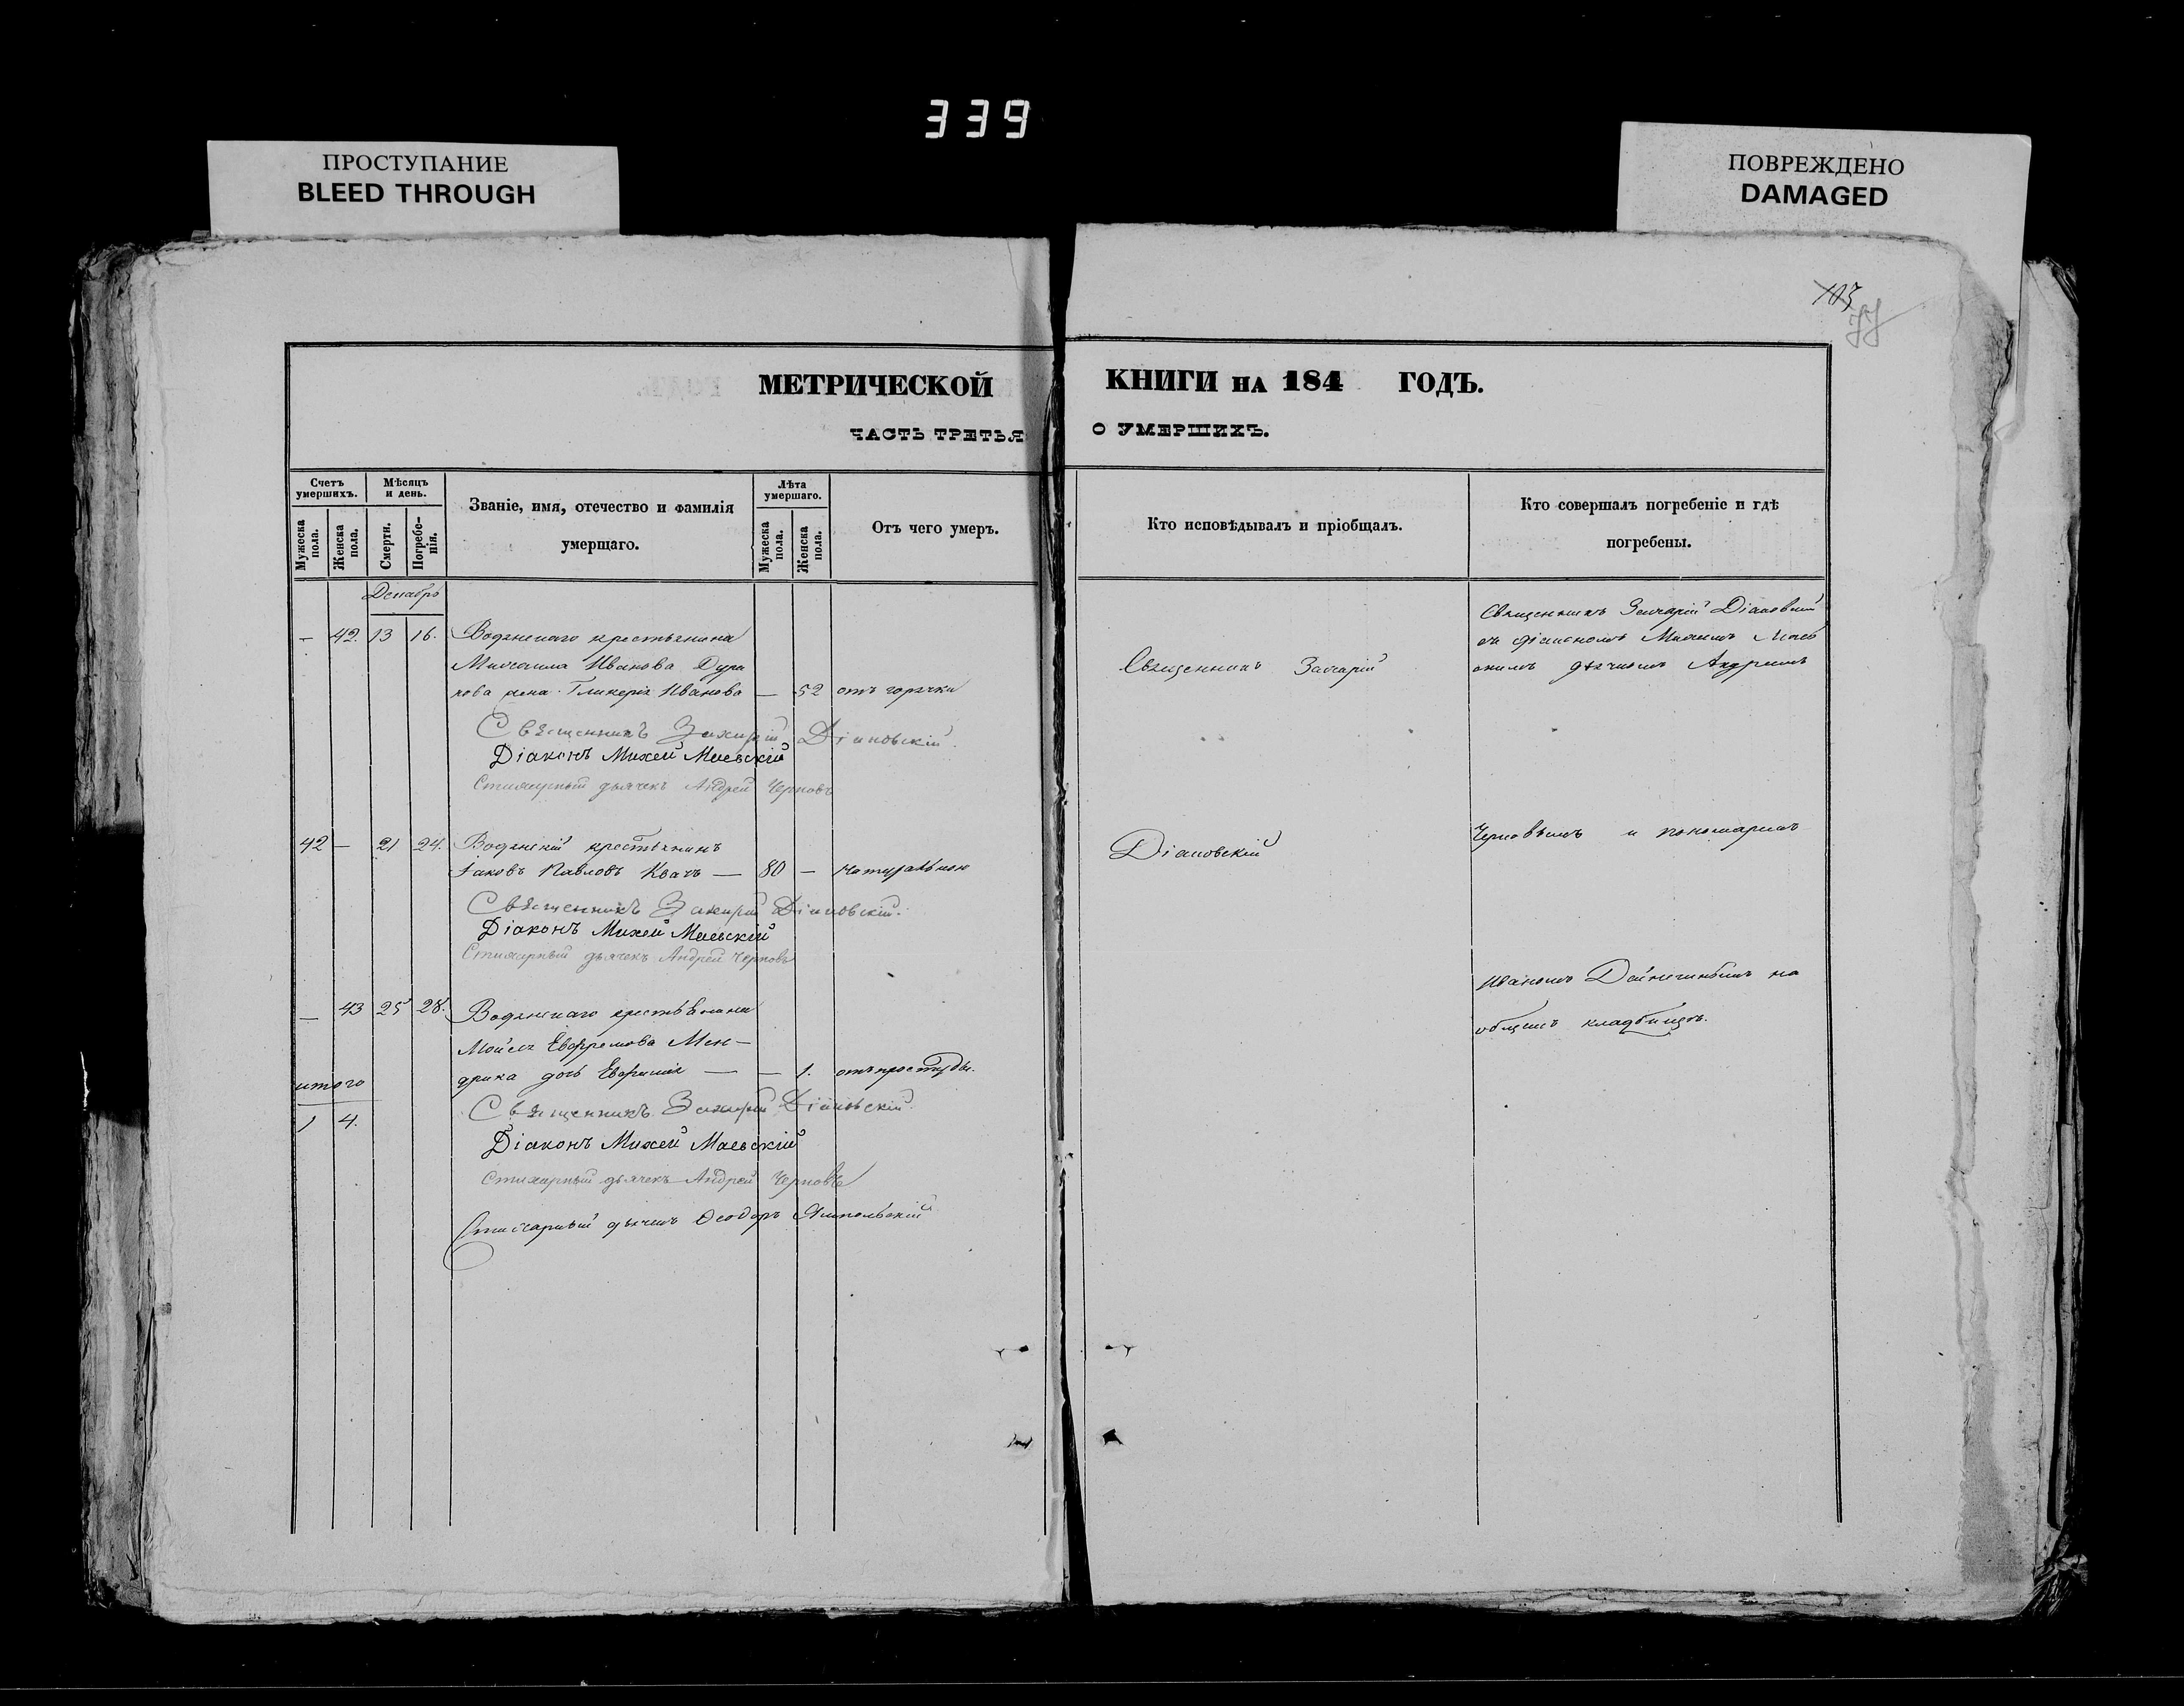 339
ПРОСТУПАНИЕ
BLEED THROUGH
ПОВРЕЖДЕНО
DAMAGED
103
МЕТРИЧЕСКОЙ КНИГИ НА 184 ГОДЪ.
ЧАСТЬ ТРЕТЬЯ О УМЕРШИХЪ.
Счетъ умершихъ.
Мужеска пола.
Женска пола.
Мѣсяцъ и день.
Смерти.
Погребенія.
Званіе, имя, отечество и фамилія
умершаго.
Лѣта умершаго.
Мужеска пола.
Женска пола.
Отъ чего умеръ.
Кто исповѣдывалъ и пріобщалъ.
Кто совершалъ погребеніе и гдѣ
погребены.
Декабрь
— 42. 13 16. Водянскаго крестьянина
Михаила Иванова Дура
кова жена Гликерія Иванова — 52 отъ горячки
Священникъ Захарій Діановскій.
Діаконъ Михей Маевскій
Стихарный дьячекъ Андрей Черновъ
42 — 21 24. Водянскій крестьянинъ
Іаковъ Павловъ Квачъ — 80 — натурально
Священникъ Захарій Діановскій.
Діаконъ Михей Маевскій
Стихарный дьячекъ Андрей Черновъ
— 43 25 28. Водянскаго крестьянина
Мойсея Евфремова Мен-
дрика дочь Евфимія — — 1. отъ простуды.
итого
1 4.
Священникъ Захарій Діановскій.
Діаконъ Михей Маевскій
Стихарный дьячекъ Андрей Черновъ
Стихарный дьячекъ Ѳеодоръ Ямпольскій
Священникъ Захарій
Діановскій
Священникъ Захарій Діановскій
съ діакономъ Михеемъ Маев
скимъ дьячкомъ Андреемъ
Черновымъ и пономаремъ
Иваномъ на
общемъ кладбищѣ.